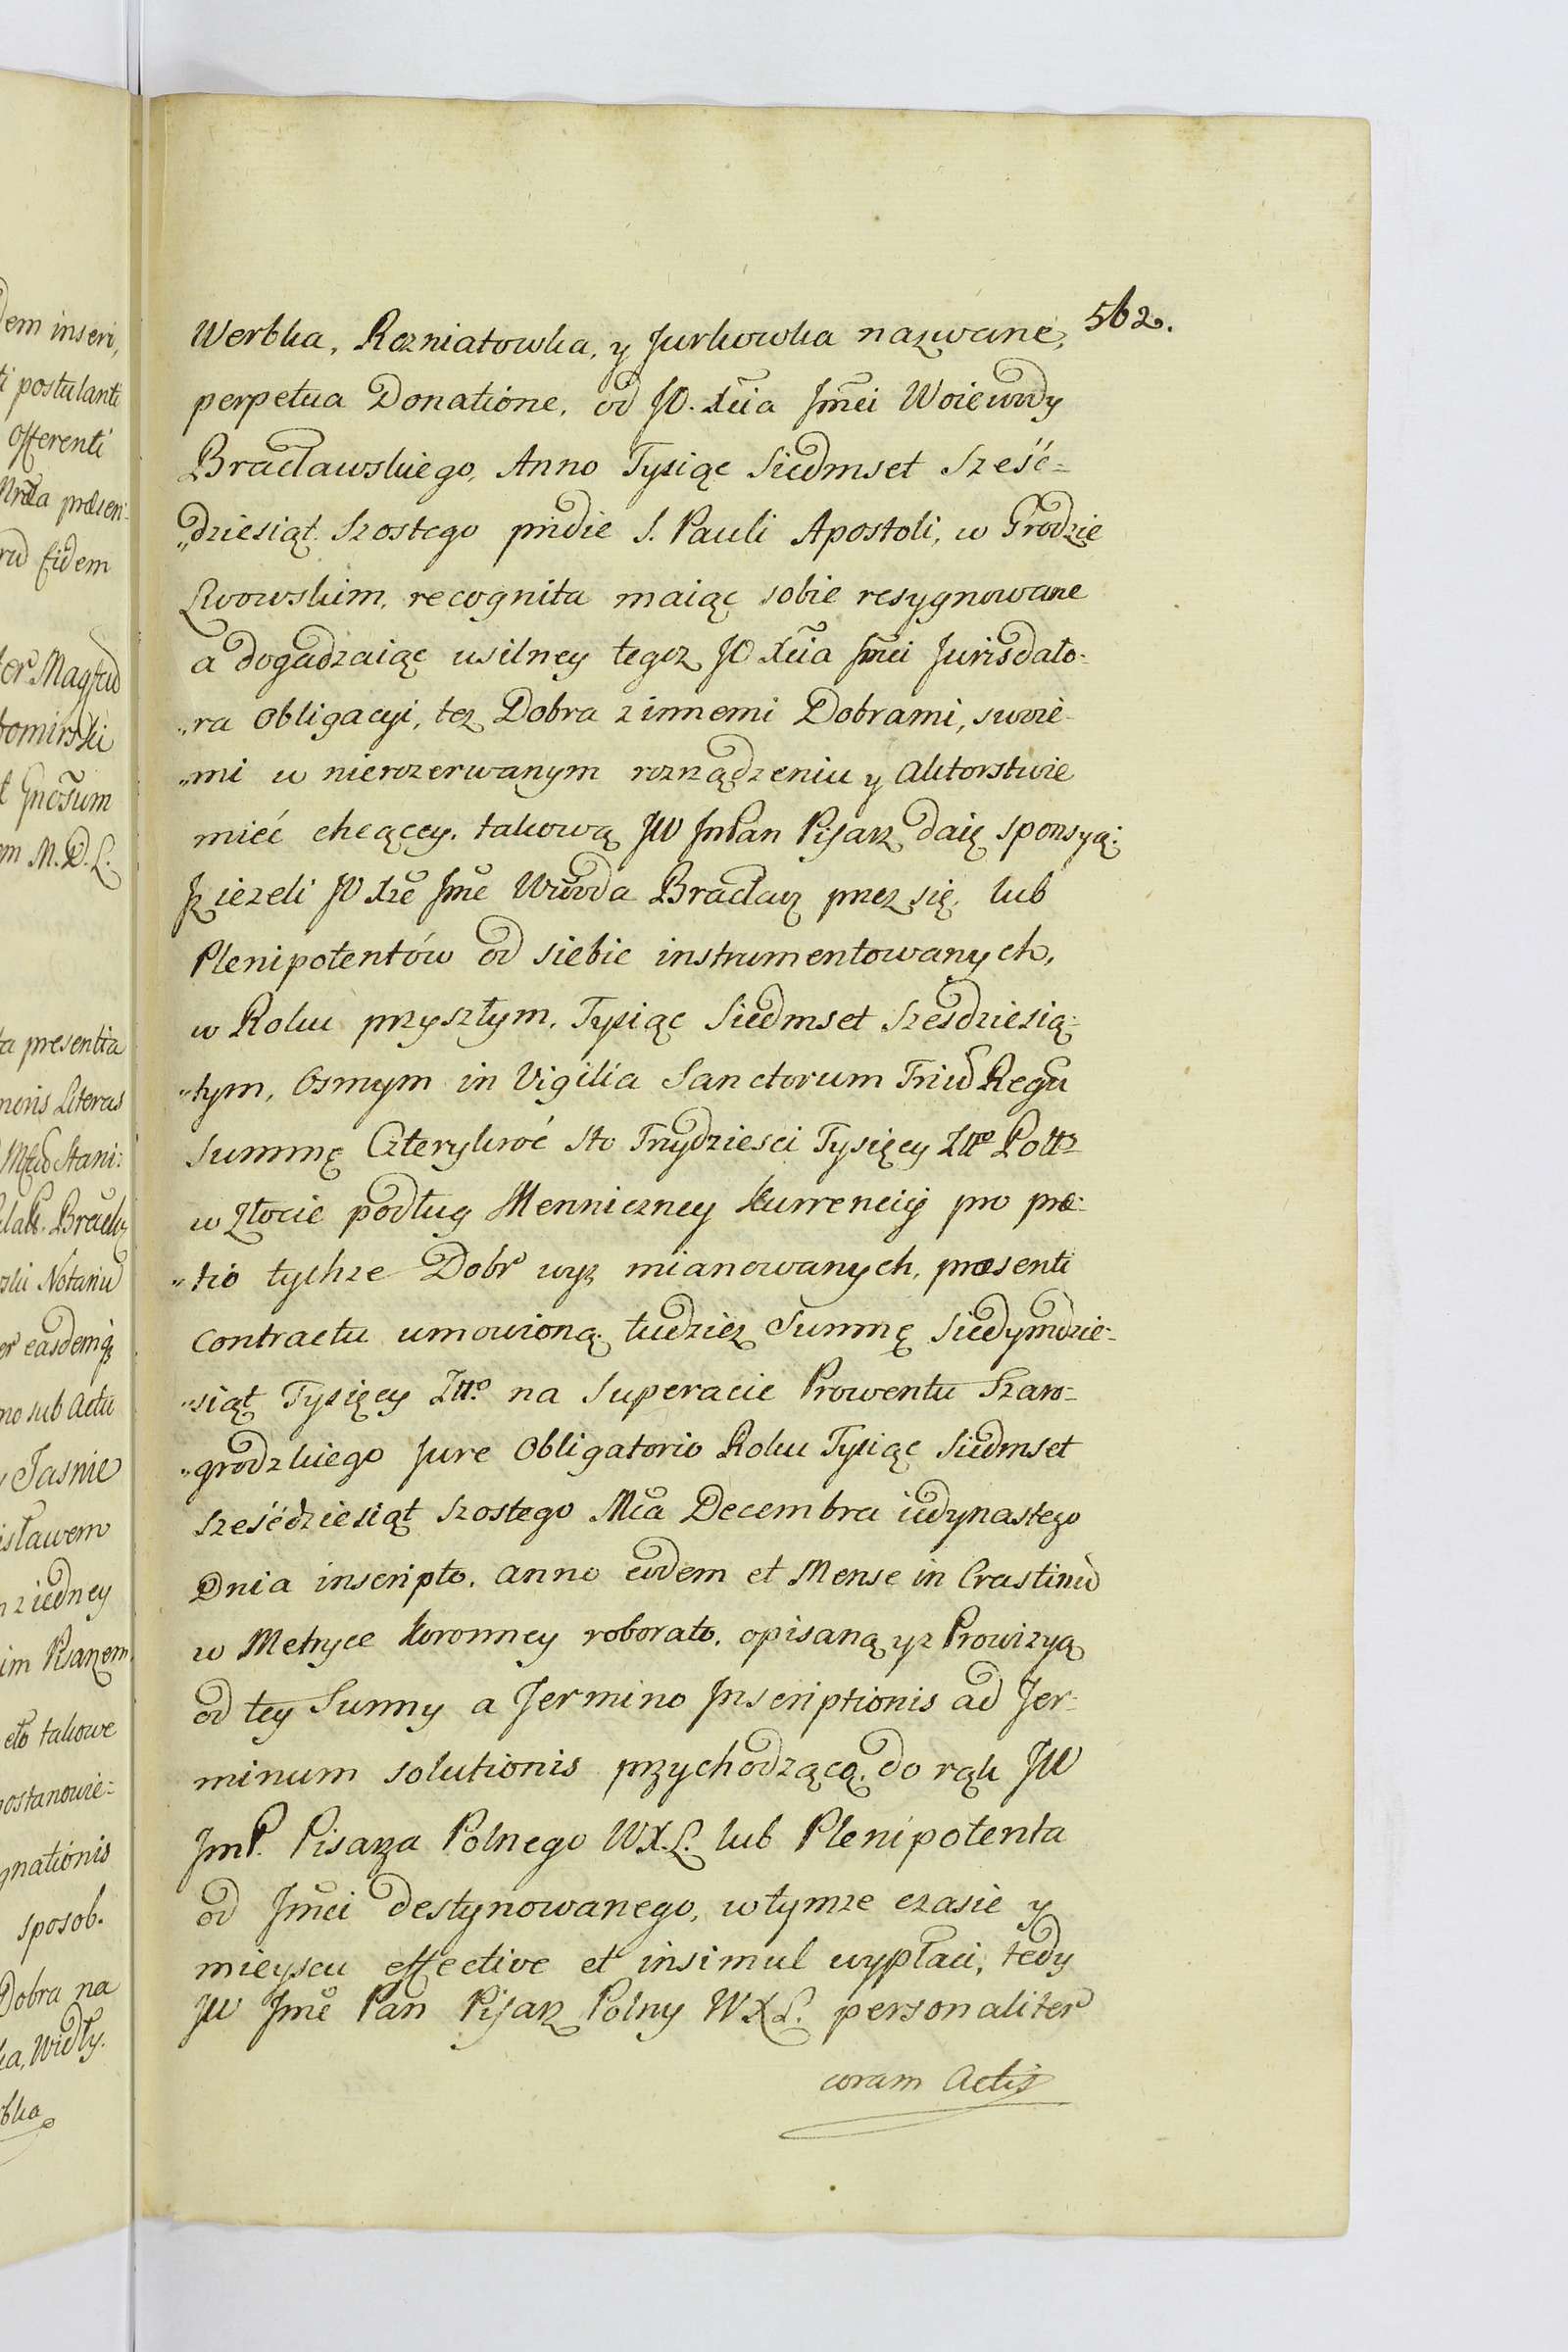 dem inseri,
ti postulanti
Offerenti
presen-
Eidem
Magfcū
bomirski
Gnosum
m M.D.L.
ta presentia
noris Literas
Mfcū Stani:
Notariū
er easdemq3
no sub Actu
Jasnie
isławem
z iedney
im Pisarzem
eto takowe
postanowie=
gnationis
sposob.
Dobra na
ka, Widły.
bka
562.
Werbka, Rozniatowka, y Jurkowka nazwane,
perpetua Donatione, od JO. Xcia Jmci Woiewody
Bracławskiego, Anno Tysiąc Siedmset Sześć=
„dziesiąt Szostego pridie S. Pauli Apostoli, w Grodzie
Lwowskim, recognita maiąc sobie resygnowane
a dogadzaiąc usilney tegoz JO Xcia Jmci Jurisdato-
„ra Obligacyi, tez Dobra z innemi Dobrami, swoie-
„mi w nierozerwanym rozrządzeniu y Aktorstwie
mieć chcącey, takową JW JmPan Pisarz daię sponsyą:
Jz iezeli JO Xże Jmć Wwoda Bracław przez się, lub
Plenipotentów od siebie instrumentowanych,
w Roku przyszłym, Tysiąc Siedmset Szesdziesią-
„tym, Osmym in Vigilia Sanctorum Triū Regū
Summę Czterykroć sto Trzydziesci Tysięcy Złło Polłz
w Złocie podług Menniczney Kurrencyi pro pre-
„tio tychze Dobr wyz mianowanych, presenti
Contractu umowioną. tudziez Summę Siedymdzie-
„siąt Tysięcy Złło na Superacie Prowentu Szaro-
„grodzkiego Jure Obligatorio Roku Tysiąc Siedmset
sześćdziesiąt szostego Mca Decembra iedynastego
Dnia inscripto. anno eodem et Mense in Crastinū
w Metryce Koronney roborato. opisaną yz Prowizyą
od tey Summy a Termino Jnscriptionis ad Ter-
minum solutionis przychodzącą. do rąk JW
JmP. Pisarza Polnego W.X.L. lub Plenipotenta
od Jmci destynowanego, w tymze czasie y
mieyscu effective et insimul wypłaci, tedy
JW Jmć Pan Pisarz Polny WXL. personaliter
coram Actis